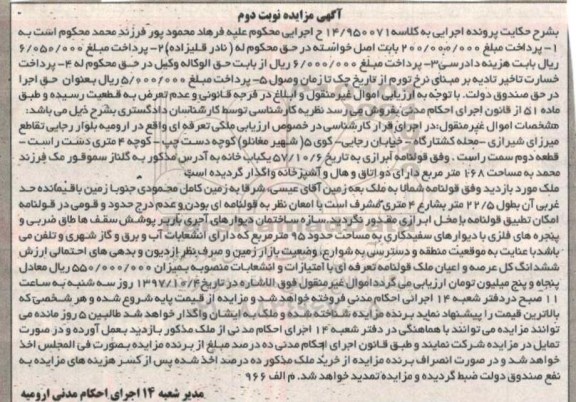 آگهی مزایده نوبت دوم
بشرح حکایت پرونده اجرایی به کلاسه ۱۴/۹۵۰۰۷۱ ح اجرایی محکوم علیه فرهاد محمود پور فرزند محمد محکوم است به
۱- پرداخت مبلغ ۲۰۰/۰۰۰/۰۰۰ بابت اصل خواسته در حق محکوم له ( نادر قلیزاده) ۲- پرداخت مبلغ ۶/۰۵۰/۰۰۰
ریال بابت هزینه دادرسی ۳- پرداخت مبلغ ۶/۰۰۰/۰۰۰ ریال از بابت حق الوکاله وکیل در حق محکوم له ۴- پرداخت
خسارت تاخیر تادیه بر مبنای نرخ تورم از تاریخ چک تا زمان وصول ۵- پرداخت مبلغ ۵/۰۰۰/۰۰۰ ریال بعنوان حق اجرا
در حق صندوق دولت. با توجه به ارزیابی اموال غیر منقول و ابلاغ در فرجه قانونی و عدم تعرض به قطعیت رسیده و طبق
ماده ۵۱ از قانون اجرای احکام مدنی بفروش می رسد نظریه کارشناسی توسط کارشناسان دادگستری بشرح ذیل می باشد:
مشخصات اموال غیر منقول: در اجرای قرار کارشناسی در خصوص ارزیابی ملکی تعرفه ای واقع در ارومیه بلوار رجایی تقاطع
میرزای شیرازی -محله کشتارگاه - خیابان رجایی- کوی ۵ (شهیر مغانلو) کوچه دست چپ - کوچه ۴ متری دست راست -
قطعه دوم سمت راست . وفق قولنامه ابرازی به تاریخ ۵۷/۱۰/۶ یکباب خانه به آدرس مذکور به گلناز سموقور مک فرزند
محمد به مساحت ۱۶۸ متر مربع دارای دو اتاق و هال و آشپزخانه واگذار گردیده است
ملک مورد بازدید وفق قولنامه شمالا به ملک بعه زمین آقای عیسی، شرقا به زمین کامل محمودی جنوبا زمین باقیمانده حد
غربی آن بطول ۲۲/۵ متر بشارع ۴ متری مشرف است با امعان نظر به قولنامه ای بودن و عدم درج حدود و قومی در قولنامه
امکان تطبیق قولنامه با محل ابرازی مقدور نگردید. سازه ساختمان دیوارهای آجری باربر پوشش سقف ها طاق ضربی و
پنجره های فلزی با دیوارهای سفیدکاری به مساحت حدود ۹۵ متر مربع که دارای انشعابات آب و برق و گاز شهری و تلفن می
باشد با عنایت به موقعیت منطقه و دسترسی به شوارع، وضعیت بازار زمین و صرف نظر از دیون و بدهی های احتمالی ارزش
ششدانگ کل عرصه و اعیان ملک قولنامه تعرفه ای با امتیازات و انشعابات منصوبه بمیزان ۵۵۰/۰۰۰/۰۰۰ ریال معادل
پنجاه و پنج میلیون تومان ارزیابی می گردد اموال غیر منقول فوق الاشاره در تاریخ ۱۳۹۷/۱۰/۴ روز سه شنبه به ساعت
۱۱ صبح در دفتر شعبه ۱۴ اجرائی احکام مدنی فروخته خواهد شد و مزایده از قیمت پایه شروع شده و هر شخصی که
بالاترین قیمت را پیشنهاد نماید برنده مزایده شناخته شده و ملک به ایشان واگذار خواهد شد طالبین ۵ روز مانده می
توانند مزایده می توانند با هماهنگی در دفتر شعبه ۱۴ اجرای احکام مدنی از ملک مذکور بازدید بعمل آورده و در صورت
تمایل در مزایده شرکت نمایند و طبق قانون اجرای احکام مدنی ده درصد مبلغ از برنده مزایده بصورت فی المجلس اخذ
خواهد شد و در صورت انصراف برنده مزایده از خرید ملک مذکور ده درصد اخذ شده پس از کسر هزینه های مزایده به
نفع صندوق دولت ضبط گردیده و مزایده تمدید خواهد شد. م الف ۹۶۶
مدیر شعبه ۱۴ اجرای احکام مدنی ارومیه